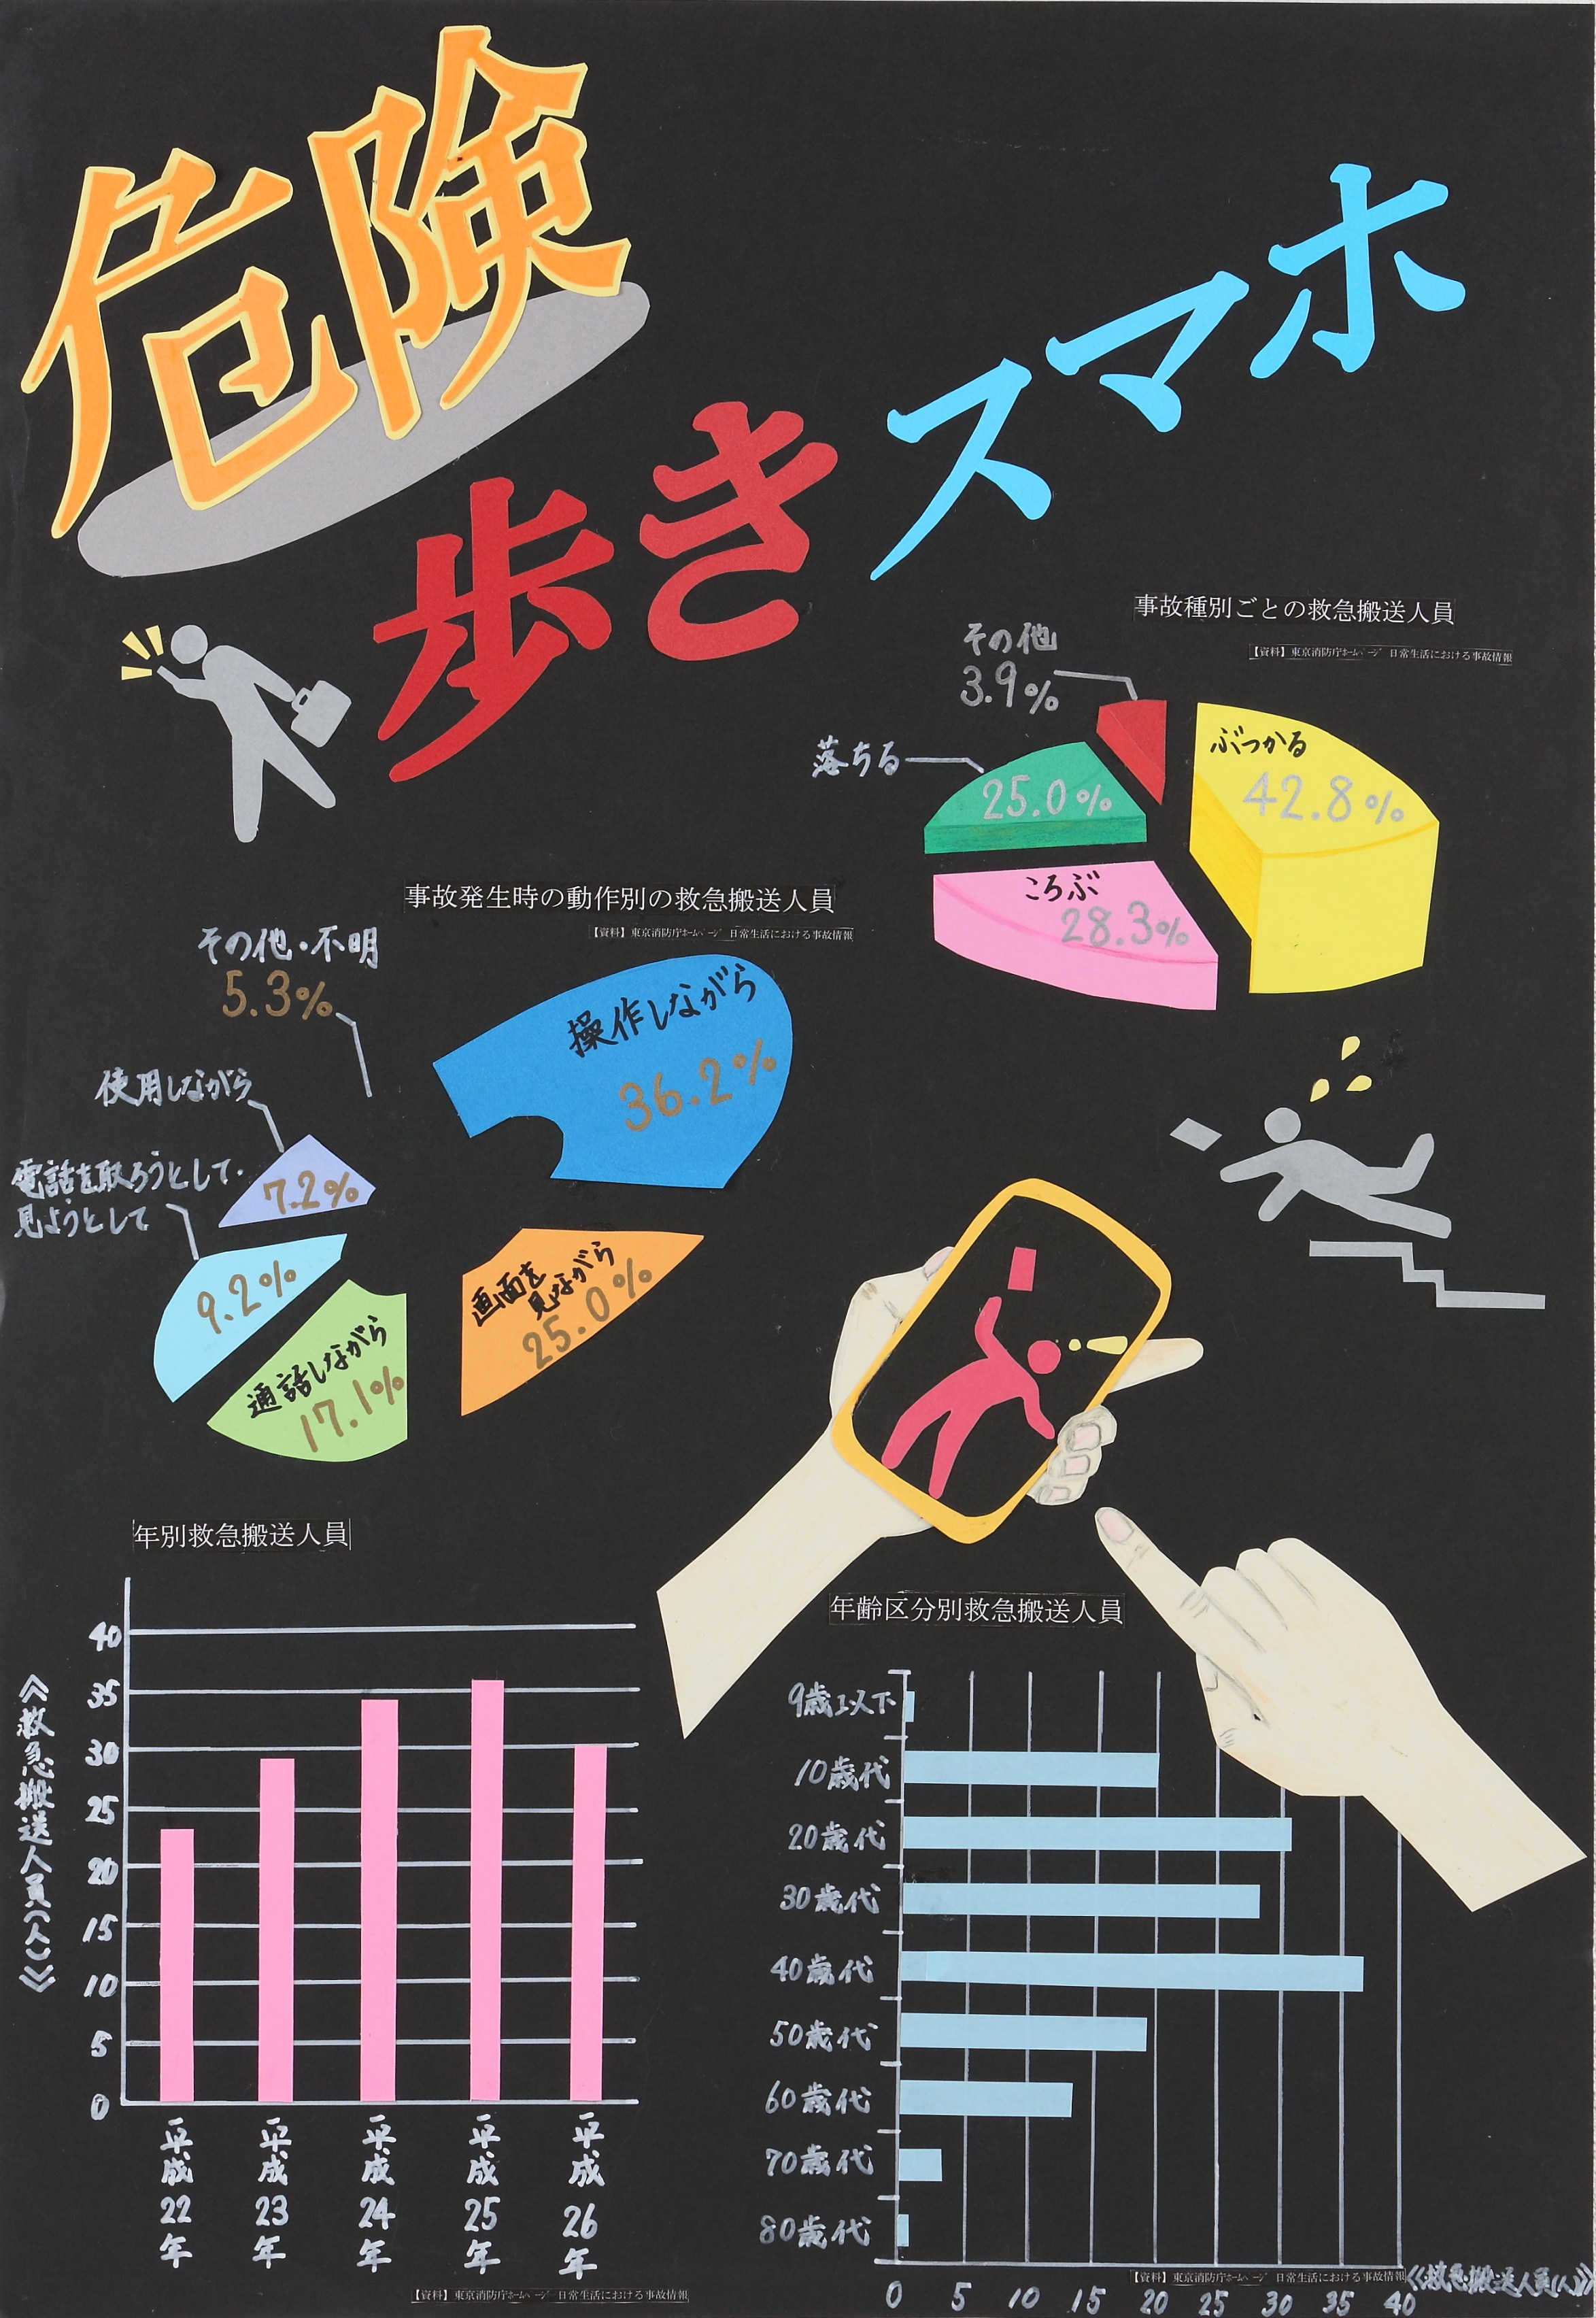 危険
歩き
スマホ
事故種別ごとの救急搬送人員
【資料】東京消防庁ホームページ 日常生活における事故情報
その他
3.9%
落ちる
25.0%
ぶつかる
42.8%
ころぶ
28.3%
事故発生時の動作別の救急搬送人員
【資料】東京消防庁ホームページ 日常生活における事故情報
その他・不明
5.3%
使用しながら
7.2%
電話を取ろうとして・
見ようとして
9.2%
操作しながら
36.2%
画面を
見ながら
25.0%
通話しながら
17.1%
年別救急搬送人員
《救急搬送人員(人)》
40
35
30
25
20
15
10
5
0
平成22年
平成23年
平成24年
平成25年
平成26年
【資料】東京消防庁ホームページ 日常生活における事故情報
年齢区分別救急搬送人員
9歳以下
10歳代
20歳代
30歳代
40歳代
50歳代
60歳代
70歳代
80歳代
0 5 10 15 20 25 30 35 40
【資料】東京消防庁ホームページ 日常生活における事故情報
《救急搬送人員(人)》